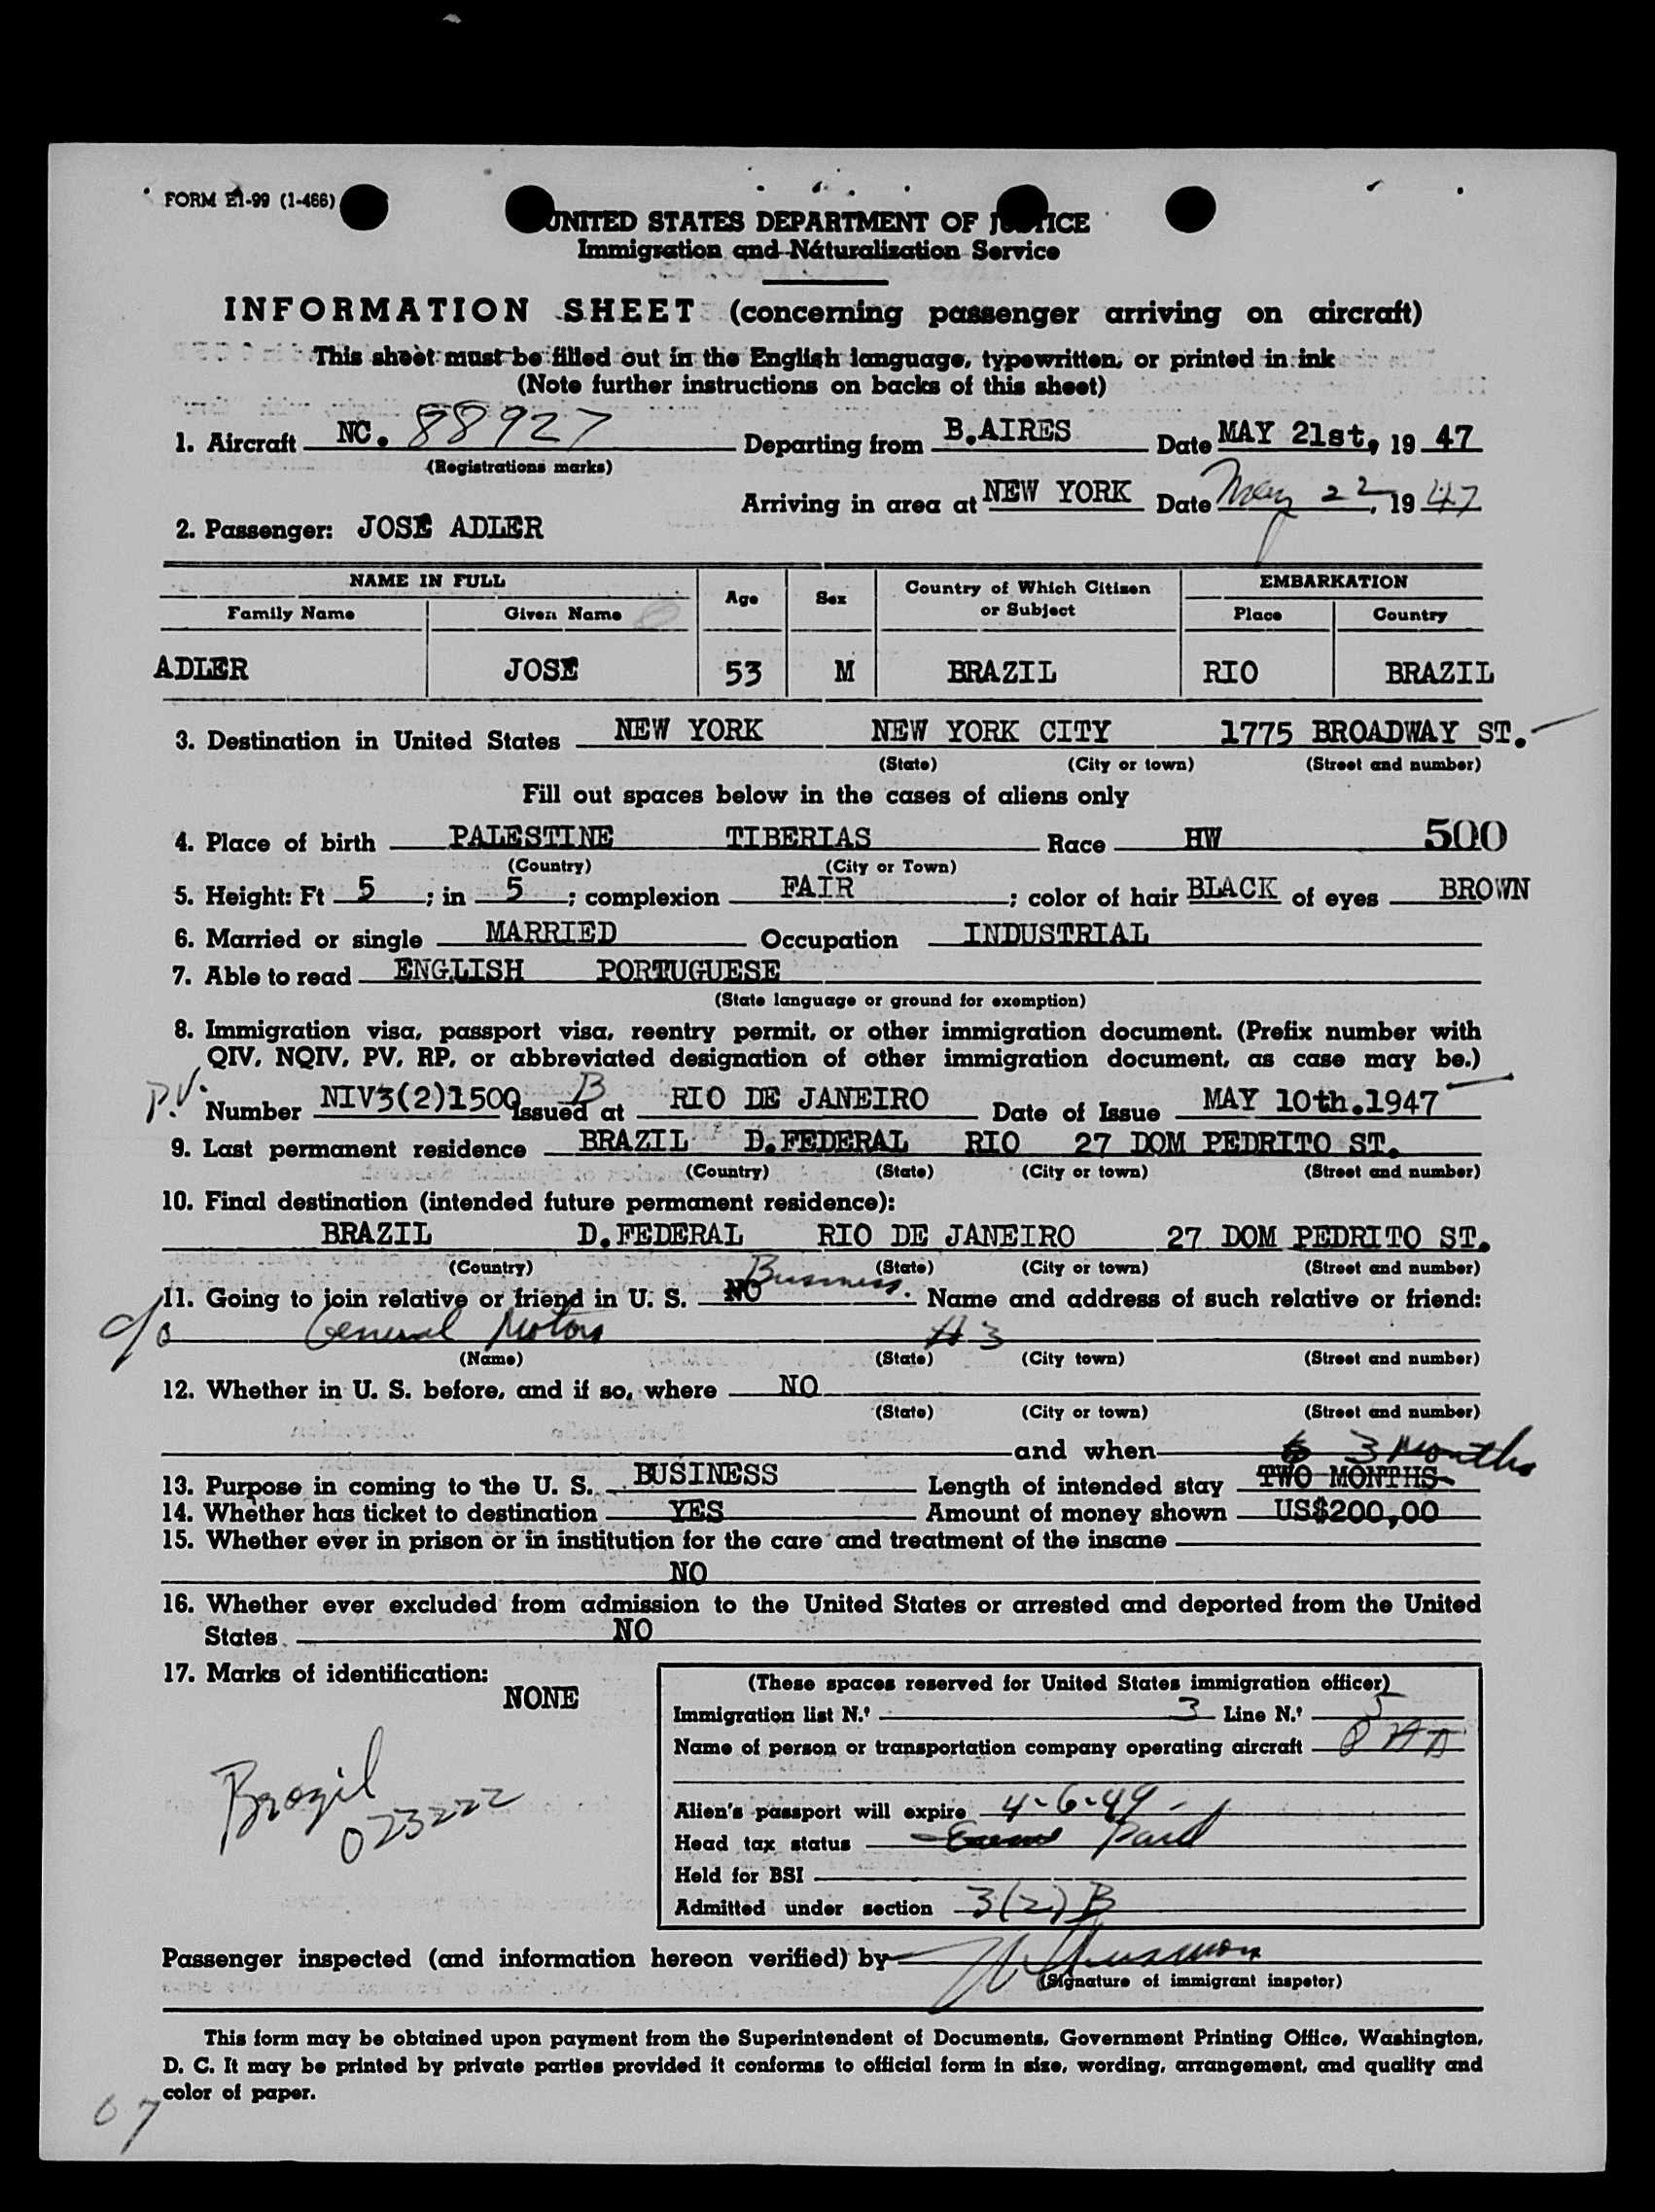 FORM E1-99 (1-466)
UNITED STATES DEPARTMENT OF JUSTICE
Immigration and Naturalization Service
INFORMATION SHEET (concerning passenger arriving on aircraft)
This sheet must be filled out in the English language, typewritten, or printed in ink
(Note further instructions on backs of this sheet)
1. Aircraft NC. 88927 Departing from B.AIRES Date MAY 21st, 19 47
(Registrations marks)
Arriving in area at NEW YORK Date May 22, 19 47
2. Passenger: JOSE ADLER
NAME IN FULL Age Sex Country of Which Citizen or Subject EMBARKATION
Family Name Given Name Place Country
ADLER JOSE 53 M BRAZIL RIO BRAZIL
3. Destination in United States NEW YORK NEW YORK CITY 1775 BROADWAY ST.
(State) (City or town) (Street and number)
Fill out spaces below in the cases of aliens only
4. Place of birth PALESTINE TIBERIAS Race HW 500
(Country) (City or Town)
5. Height: Ft 5 ; in 5 ; complexion FAIR ; color of hair BLACK of eyes BROWN
6. Married or single MARRIED Occupation INDUSTRIAL
7. Able to read ENGLISH PORTUGUESE
(State language or ground for exemption)
8. Immigration visa, passport visa, reentry permit, or other immigration document. (Prefix number with
QIV, NQIV, PV, RP, or abbreviated designation of other immigration document, as case may be.)
P.V. Number NIV3(2)1500 B Issued at RIO DE JANEIRO Date of Issue MAY 10th.1947
9. Last permanent residence BRAZIL D.FEDERAL RIO 27 DOM PEDRITO ST.
(Country) (State) (City or town) (Street and number)
10. Final destination (intended future permanent residence):
BRAZIL D.FEDERAL RIO DE JANEIRO 27 DOM PEDRITO ST.
(Country) (State) (City or town) (Street and number)
11. Going to join relative or friend in U. S. NO Business. Name and address of such relative or friend:
c/o General Motors #3
(Name) (State) (City town) (Street and number)
12. Whether in U. S. before, and if so, where NO
(State) (City or town) (Street and number)
and when
3 Months
13. Purpose in coming to the U. S. BUSINESS Length of intended stay TWO MONTHS
14. Whether has ticket to destination YES Amount of money shown US$200,00
15. Whether ever in prison or in institution for the care and treatment of the insane
NO
16. Whether ever excluded from admission to the United States or arrested and deported from the United
States NO
17. Marks of identification:
NONE
Brazil
023222
(These spaces reserved for United States immigration officer)
Immigration list N.º 3 Line N.º 5
Name of person or transportation company operating aircraft PAA
Alien's passport will expire 4-6-49 -
Head tax status Paid
Held for BSI
Admitted under section 3(2) B
Passenger inspected (and information hereon verified) by
(Signature of immigrant inspetor)
This form may be obtained upon payment from the Superintendent of Documents, Government Printing Office, Washington,
D. C. It may be printed by private parties provided it conforms to official form in size, wording, arrangement, and quality and
color of paper.
67